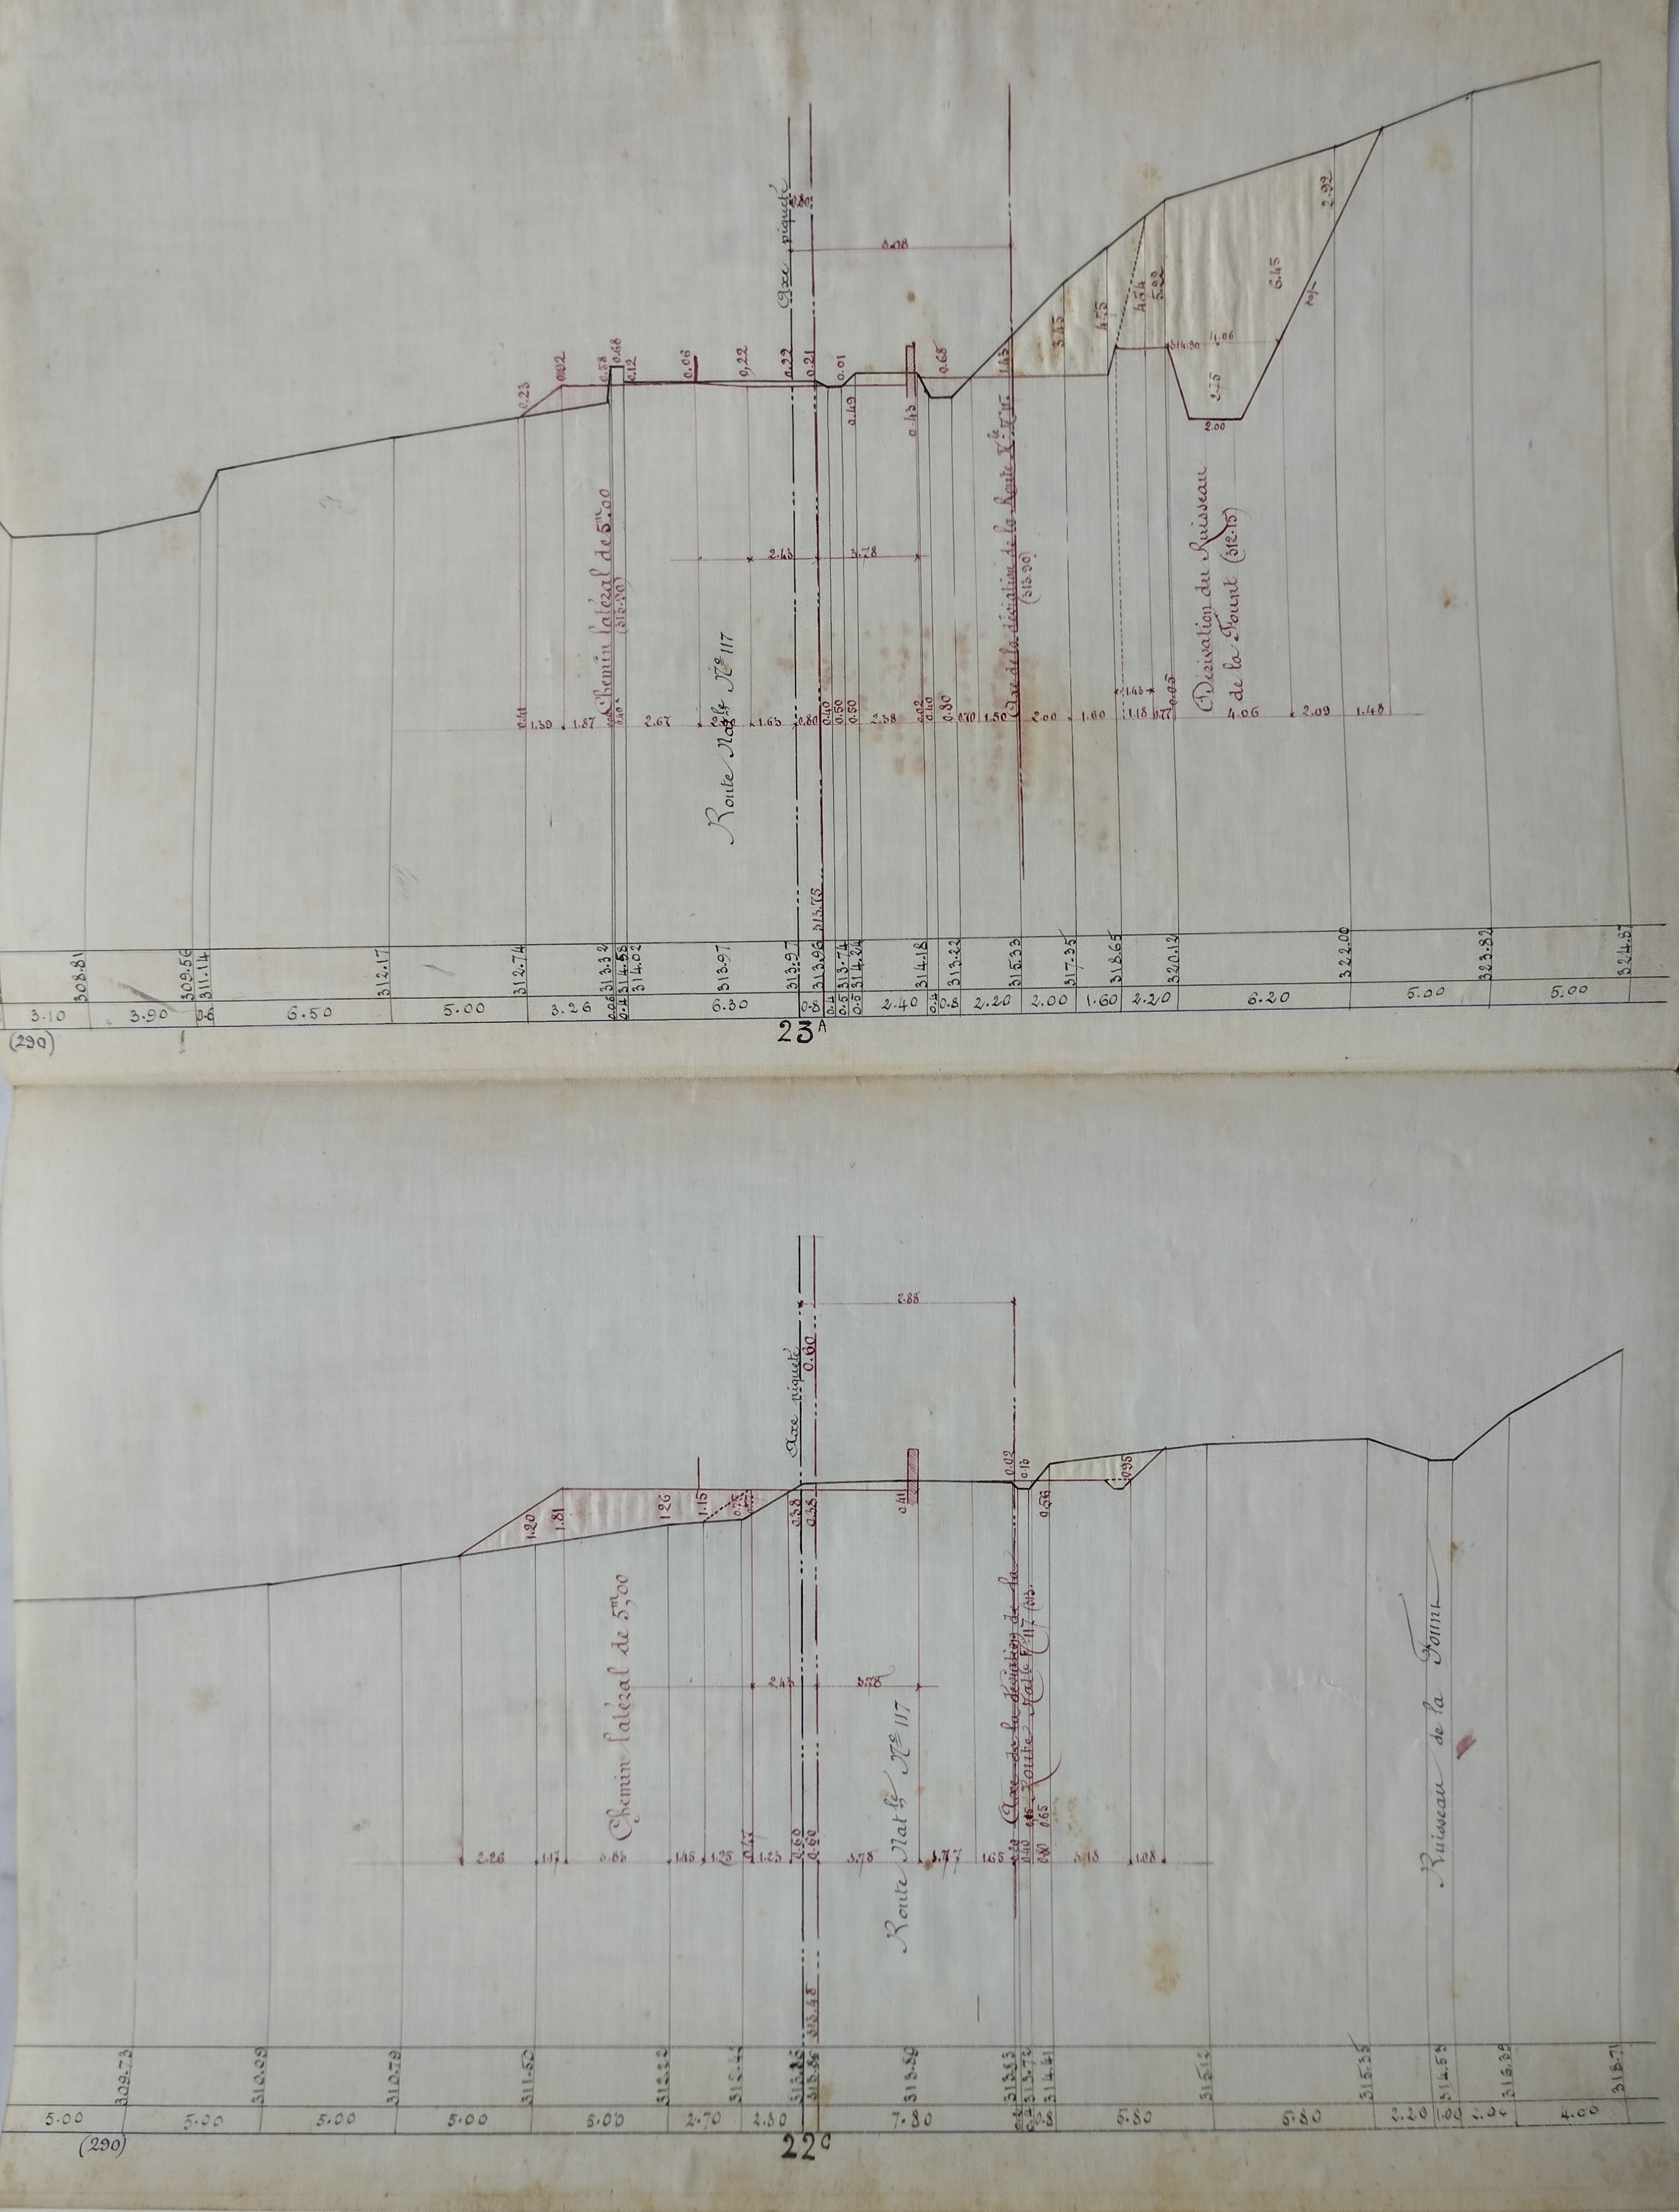 Axe piqueté
0.23
0.02
0.68
0.12
0.06
0,22
0.22
0.21
0.01
0.68
0.49
0.43
1.43
3.45
4.75
4.54
5.92
2.92
6.45
2.75
2.00
Chemin latéral de 5m.00
(313.90)
2.43
3.78
Route Natle No 117
Axe de la déviation de la Route
(313.90)
Dérivation du Ruisseau
de la Fount (312.15)
1.39 1.87 2.67 1.63 0.80 0.40 0.50 0.50 2.38 0.40 0.80 0.70 1.50 2.00 1.60 1.18 4.06 2.09 1.48
1.45
313.75
308.81 309.56 311.14 312.17 312.74 313.32 314.58 314.02 313.97 313.97 313.96 313.74 314.24 314.18 313.22 315.33 317.35 318.65 320.12 322.00 323.82 324.87
3.10 3.90 0.6 6.50 5.00 3.26 0.4 6.30 0.8 0.4 0.5 0.5 2.40 0.4 0.8 2.20 2.00 1.60 2.20 6.20 5.00 5.00
(290)
23A
Axe piqueté
0.60
1.20
1.81
1.26
1.15
0.38
0.38
0.41
0.02
0.13
0.95
Chemin latéral de 5m,00
2.43
Route Natle No 117
Axe de la déviation de la
Route Natle No 117 (313.
Ruisseau de la Fount
2.26 1.17 1.45 1.25 1.23 0.60 0.60 3.78 1.65 0.40 0.80 3.18 1.08
0.65
313.48
309.73 310.09 310.79 311.50 312.22 313.86 313.80 313.83 313.72 314.41 315.12 315.35 314.53 316.35 318.71
5.00 5.00 5.00 5.00 5.00 2.70 2.30 7.80 0.8 5.80 5.80 2.20 1.00 2.00 4.00
(290)
22c